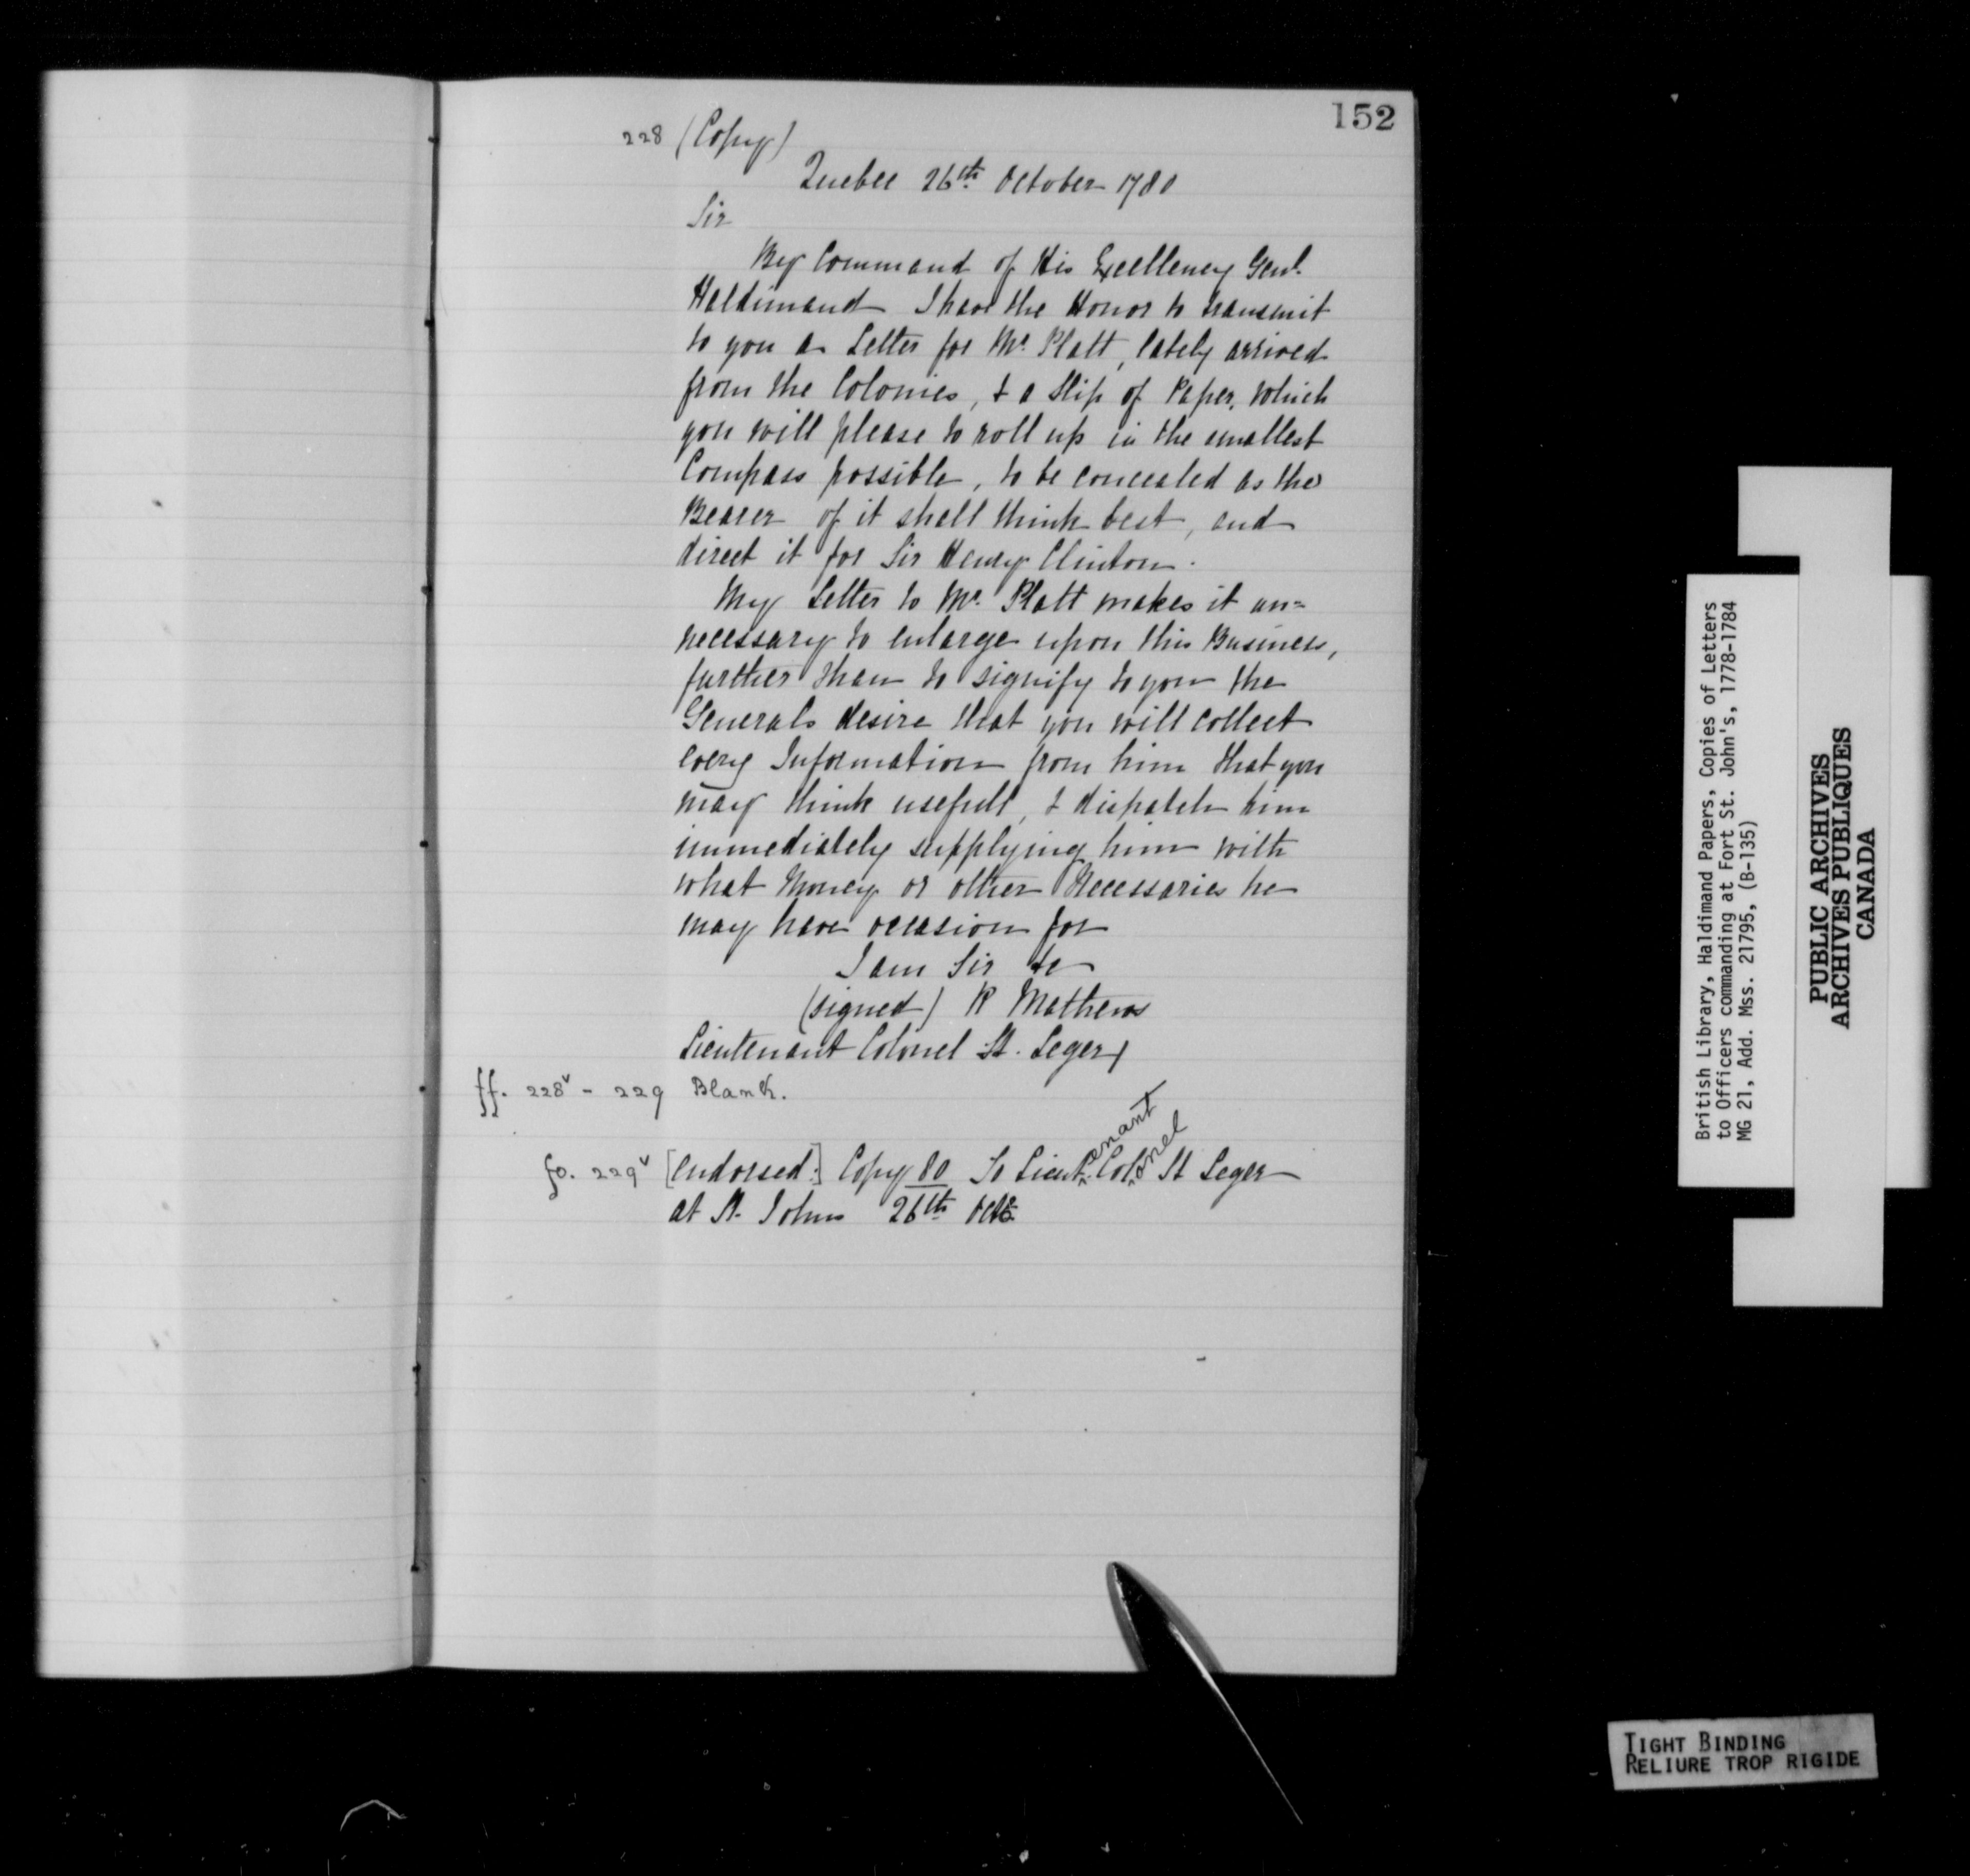 152
228 (Copy)
Quebec 26th October 1780
Sir
By Command of His Excellency Genl.
Haldimand I have the Honor to transmit
to you a Letter for Mr. Platt, lately arrived
from the Colonies, & a Slip of Paper, which
you will please to roll up in the smallest
Compass possible, to be concealed as the
Bearer of it shall think best, and
direct it for Sir Henry Clinton.
My Letter to Mr. Platt makes it un=
necessary to enlarge upon this Business,
further than to signify to you the
Generals desire that you will collect
every Information from him that you
may think usefull, & dispatch him
immediately supplying him with
what Money or other Necessaries he
may have occasion for
I am Sir &c
(signed) R Mathews
Lieutenant Colonel St. Leger
ff. 228v - 229 Blank.
fo. 229v [endorsed:] Copy 80 To Lieutenant Colonel St Leger
at St. Johns 26th Octr.
British Library, Haldimand Papers, Copies of Letters
to Officers commanding at Fort St. John's, 1778-1784
MG 21, Add. Mss. 21795, (B-135)
PUBLIC ARCHIVES
ARCHIVES PUBLIQUES
CANADA
TIGHT BINDING
RELIURE TROP RIGIDE